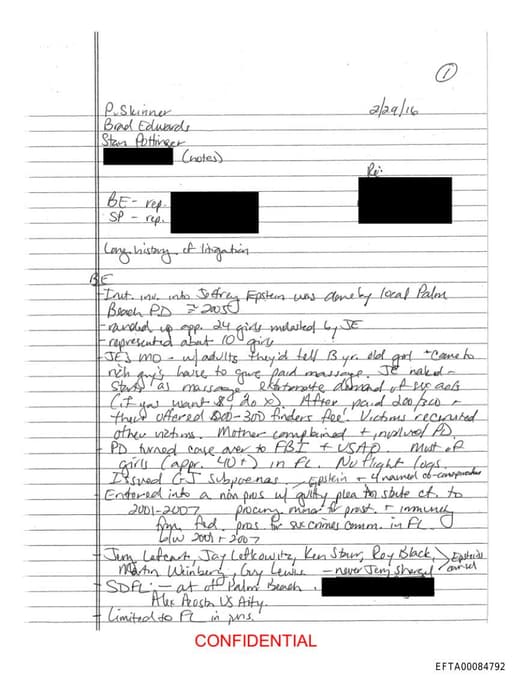 1
P. Skinner 2/29/16
Brad Edwards
Stan Pottinger
(notes)
Re:
BE - rep.
SP - rep.
Long history of litigation
BE
- Init. inv. into Jeffrey Epstein was done by local Palm
Beach PD ≈ 2005
- rounded up app. 24 girls molested by JE
- represented about 10 girls
- JE's MO - w/ adults they'd tell 13 yr. old girl "come to
rich guy's house to give paid massage. JE naked -
starts as massage demand of sex acts
(if you want $, do x). After paid 200/300 +
then offered 200-300 finders fee. Victims recruited
other victims. Mother complained + involved PD.
PD turned case over to FBI + USAO. Most of
girls (appr. 40+) in FL. No flight logs.
Issued GJ subpoenas. Epstein + 4 named co-conspirators
Entered into a non pros w/ guilty plea to state ct. to
2001-2007 procuring minor for prost. + immunity
from fed. pros. for sex crimes comm. in FL.
b/w 2001 + 2007
- Jay Lefkowitz, Ken Starr, Roy Black, Epstein's
Martin Weinberg, Guy Lewis - never counsel
- SDFL: - at of Palm Beach.
Alex Acosta US Atty.
- Limited to FL in juris.
CONFIDENTIAL
EFTA00084792